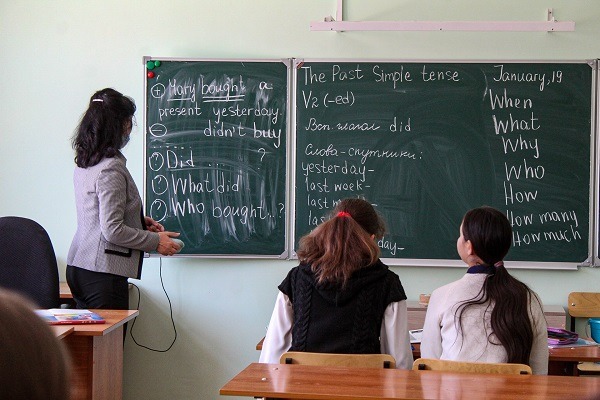 + Mary bought a
present yesterday
- didn't buy
? Did .... ?
? What did
? Who bought...?
The Past Simple tense
V2 (-ed)
Всп. глагол did
Слова-спутники:
yesterday-
last week-
last
last
day-
January, 19
When
What
Why
Who
How
How many
How much